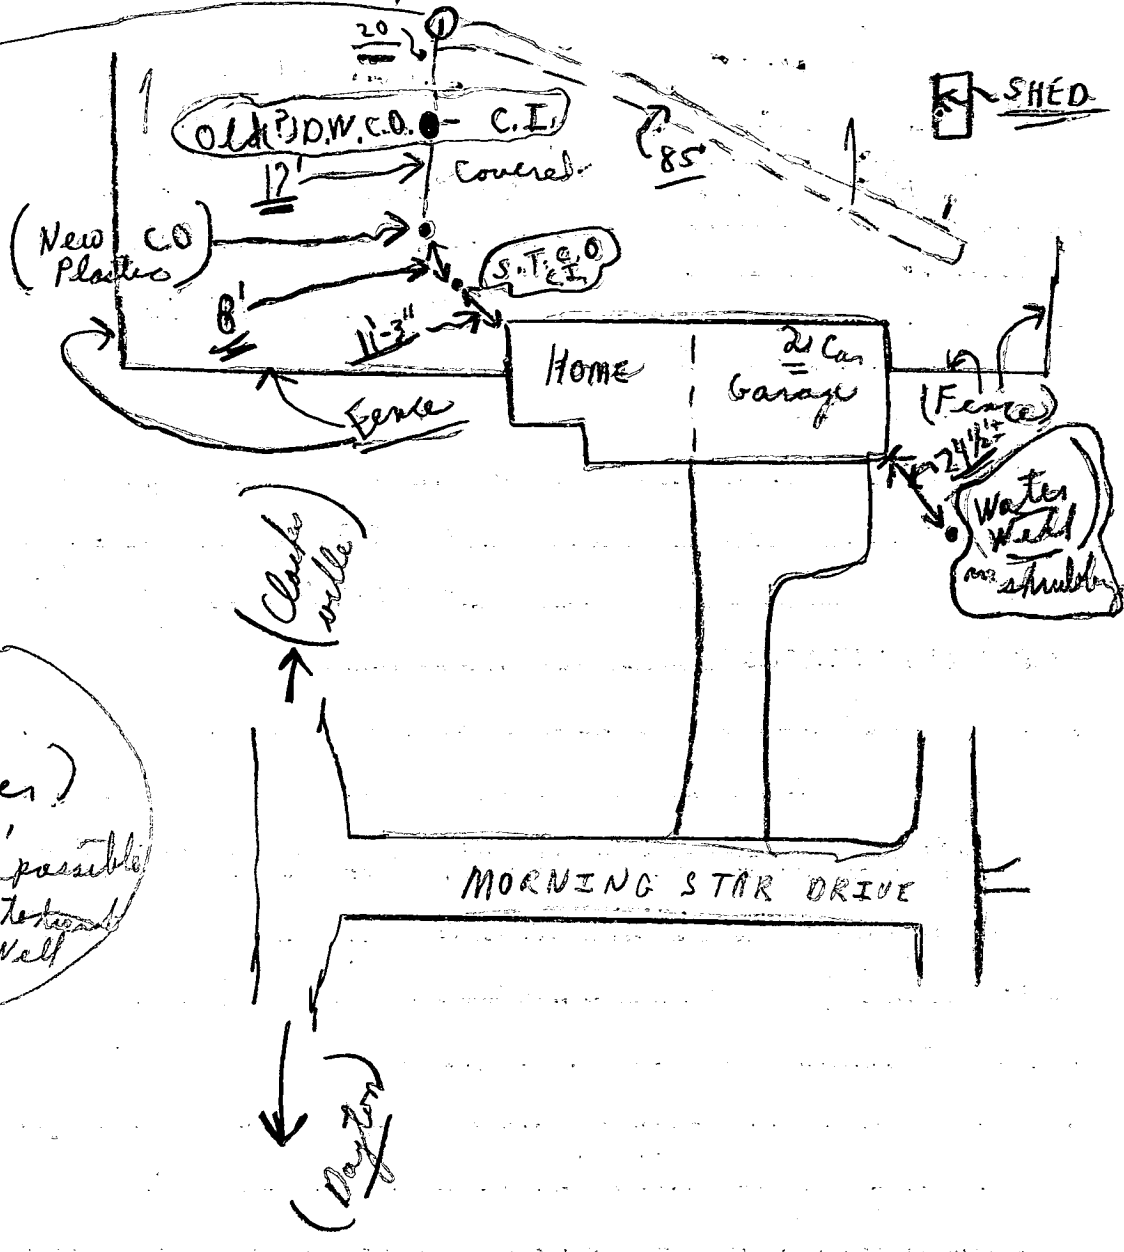 1
20
SHED
Old(?) D.W.C.O. - C.I.
85'
17'
Covered
(New C.O
Plastic)
S.T.C.O
C.I.
8'
11'-3"
HOME
2 Car
Garage
(Fence)
Fence
24½'±
(Water
Well)
in shrubby
(Clarks
ville)
possible
Well
MORNING STAR DRIVE
(Dayton)